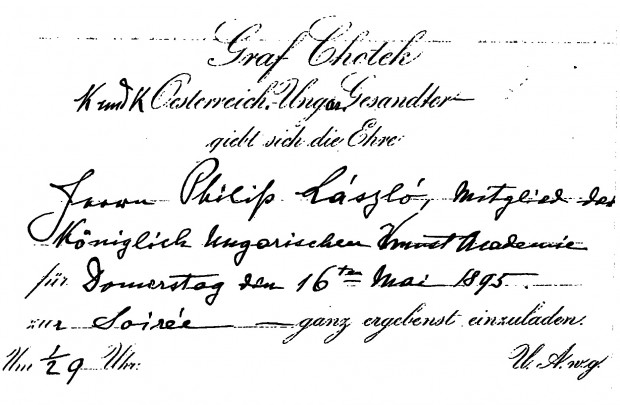 Graf Chotek
K und K Oesterreich. Ungar. Gesandter
giebt sich die Ehre
Herrn Philip László, Mitglied der
Königlich Ungarischen Kunst Academie
für Donnerstag den 16ten Mai 1895.
zur Soirée — ganz ergebenst einzuladen.
Um ½ 9 Uhr. U. A. w. g.